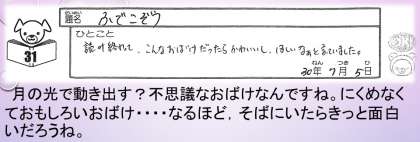 題名 ふでこぞう
ひとこと
読み終れて、こんなおばけだったらかわいいし、ほしいなぁと言いました。
31
ねん つき ひ
30年 7月 5日
月の光で動き出す？不思議なおばけなんですね。にくめなく
ておもしろいおばけ・・・・なるほど，そばにいたらきっと面白
いだろうね。